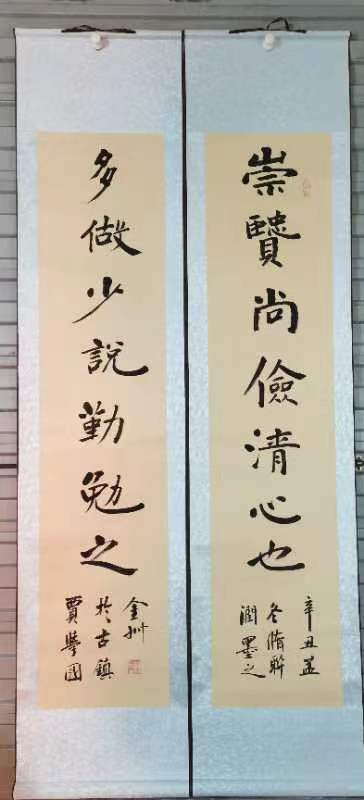 崇賢尚儉清心也
辛丑孟
冬脩聯
潤墨之
多做少說勤勉之
金州
於古鎮
賈舉國